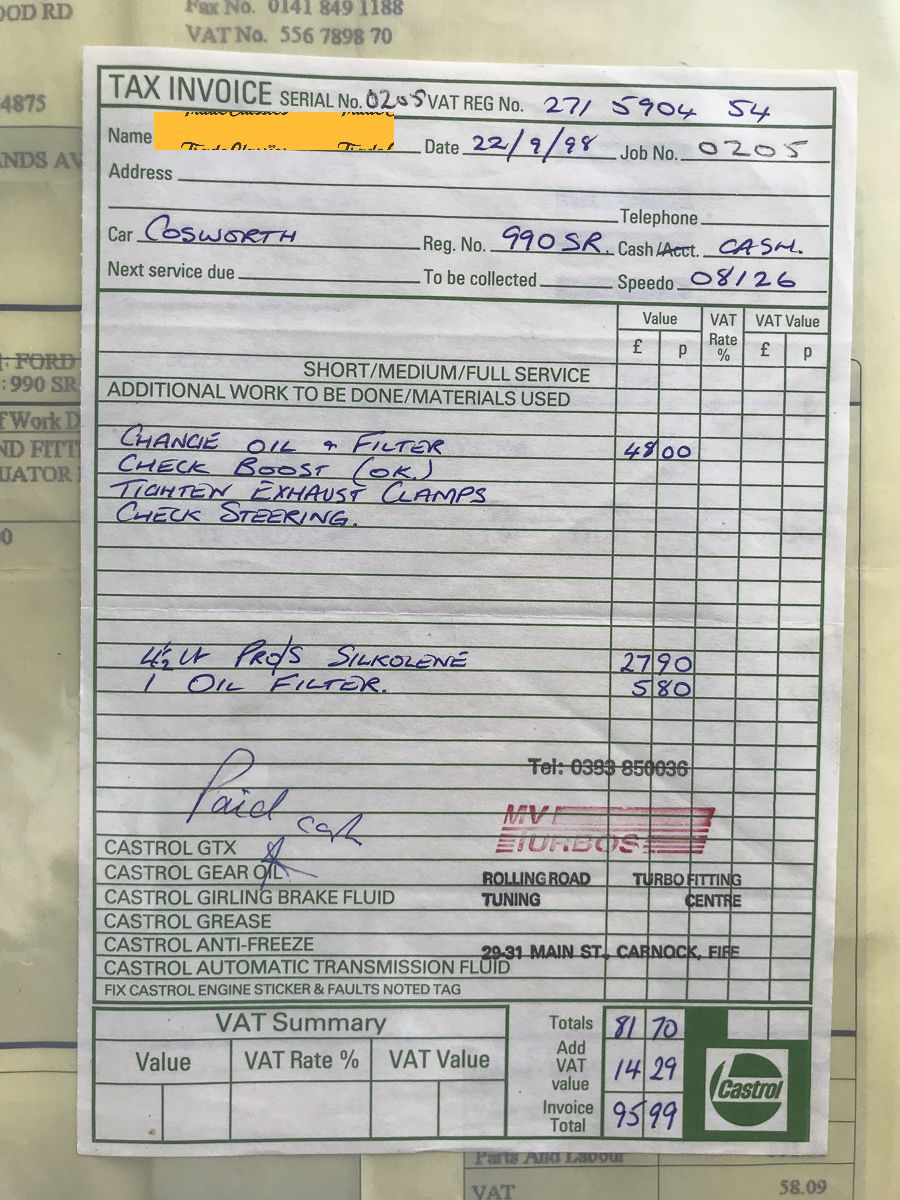 OOD RD
Fax No. 0141 849 1188
VAT No. 556 7898 70
4875
ANDS AV
TAX INVOICE SERIAL No. 0205 VAT REG No. 271 5904 54
Name Date 22/9/98 Job No. 0205
Address
Telephone
Car COSWORTH Reg. No. 990 SR. Cash/Acct. CASH.
Next service due To be collected Speedo 08126
Value VAT Rate % VAT Value
£ p £ p
FORD
: 990 SR
SHORT/MEDIUM/FULL SERVICE
ADDITIONAL WORK TO BE DONE/MATERIALS USED
f Work D
ND FITT
UATOR
CHANGE OIL & FILTER 48 00
CHECK BOOST (OK.)
TIGHTEN EXHAUST CLAMPS
CHECK STEERING.
4½ Lt PRO/S SILKOLENE 27 90
1 OIL FILTER. 5 80
Tel: 0383 850036
Paid cash
MV TURBOS
CASTROL GTX
CASTROL GEAR OIL
ROLLING ROAD TURBO FITTING
TUNING CENTRE
CASTROL GIRLING BRAKE FLUID
CASTROL GREASE
CASTROL ANTI-FREEZE
29-31 MAIN ST., CARNOCK, FIFE
CASTROL AUTOMATIC TRANSMISSION FLUID
FIX CASTROL ENGINE STICKER & FAULTS NOTED TAG
VAT Summary
Value VAT Rate % VAT Value
Totals 81 70
Add VAT value 14 29
Invoice Total 95 99
Castrol
Parts And Labour
VAT 58.09